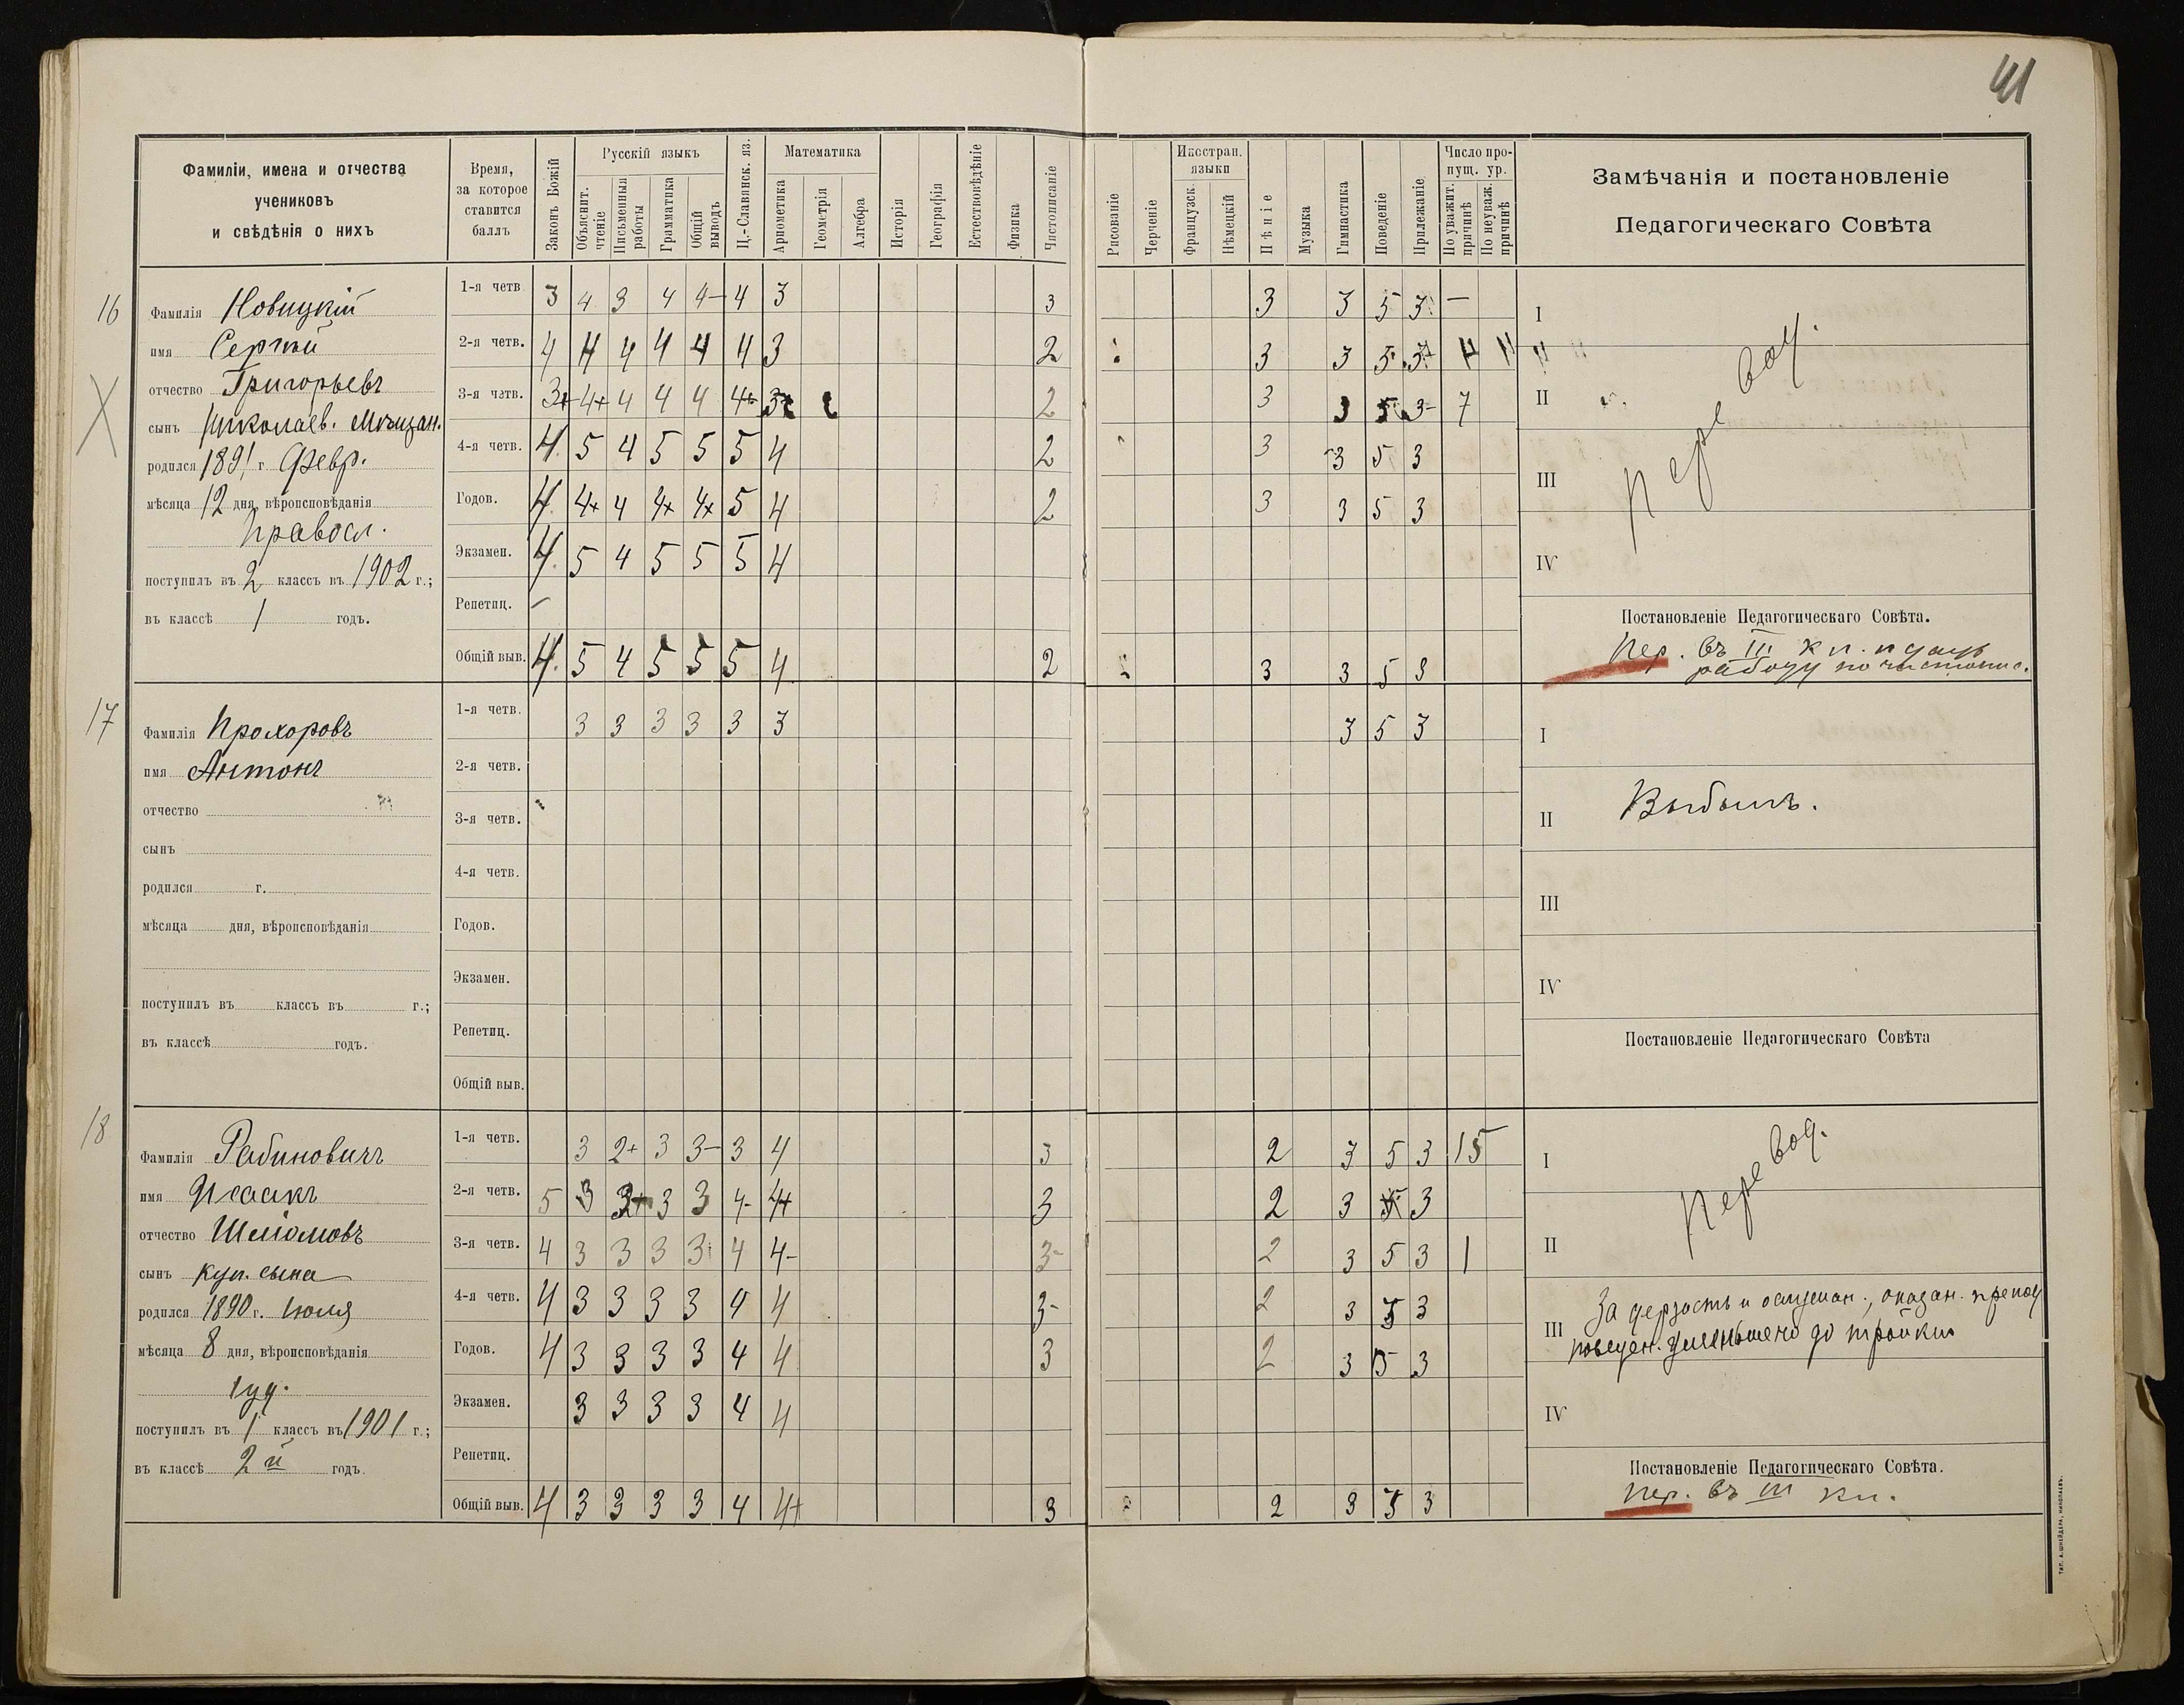 41
Фамиліи, имена и отчества
учениковъ
и свѣдѣнія о нихъ
Время,
за которое
ставится
баллъ
Законъ Божій
Русскій языкъ
Объяснит. чтеніе
Письменныя работы
Грамматика
Общій выводъ
Ц.-Славянск. яз.
Математика
Ариѳметика
Геометрія
Алгебра
Исторія
Географія
Естествовѣдѣніе
Физика
Чистописаніе
Рисованіе
Черченіе
Иностран. языки
Французск.
Нѣмецкій
Пѣніе
Музыка
Гимнастика
Поведеніе
Прилежаніе
Число пропущ. ур.
По уважит. причинѣ
По неуваж. причинѣ
Замѣчанія и постановленіе
Педагогическаго Совѣта
16
Фамилія Новицкій
имя Сергѣй
отчество Григорьевъ
сынъ Николаев. мѣщан.
родился 1891 г. Февр.
мѣсяца 12 дня, вѣроисповѣданія
правосл.
поступилъ въ 2 классъ въ 1902 г.;
въ классѣ 1 годъ.
1-я четв. 3 4 3 4 4- 4 3 3 3 3 5 3 —
2-я четв. 4 4 4 4 4 4 3 2 3 3 5
3-я четв. 3+ 4+ 4 4 4 4+ 2 3 3 5 3- 7
4-я четв. 4 5 4 5 5 5 4 2 3 3 5 3
Годов. 4 4+ 4 4+ 4+ 5 4 2 3 3 5 3
Экзамен. 4 5 4 5 5 5 4
Репетиц. –
Общій выв. 4 5 4 5 5 5 4 2 3 3 5 3
I
II
III
IV
Перевод.
Постановленіе Педагогическаго Совѣта.
Пер. въ III кл.
работу по чистопис.
17
Фамилія Прохоровъ
имя Антонъ
отчество
сынъ
родился г.
мѣсяца дня, вѣроисповѣданія
поступилъ въ классъ въ г.;
въ классѣ годъ.
1-я четв. 3 3 3 3 3 3 3 5 3
2-я четв.
3-я четв.
4-я четв.
Годов.
Экзамен.
Репетиц.
Общій выв.
I
II Выбылъ.
III
IV
Постановленіе Педагогическаго Совѣта
18
Фамилія Рабиновичъ
имя Исаакъ
отчество Шлiомовъ
сынъ куп. сына
родился 1890 г. Июля
мѣсяца 8 дня, вѣроисповѣданія
іуд.
поступилъ въ 1 классъ въ 1901 г.;
въ классѣ 2й годъ.
1-я четв. 3 2+ 3 3- 3 4 3 2 3 5 3 15
2-я четв. 5 3 3 3 4- 4+ 3 2 3 5 3
3-я четв. 4 3 3 3 3 4 4- 3- 2 3 5 3 1
4-я четв. 4 3 3 3 3 4 4 3- 2 3 3 3
Годов. 4 3 3 3 3 4 4 3 2 3 5 3
Экзамен. 3 3 3 3 4 4
Репетиц.
Общій выв. 4 3 3 3 3 4 4+ 3 2 3 3 3
I
II
Перевод.
За дерзость и ослушан., оказан. препод
III поведен. уменьшено до тройки
IV
Постановленіе Педагогическаго Совѣта.
Пер. въ III кл.
ТИП. А. ШНЕЙДЕРА, НИКОЛАЕВЪ.